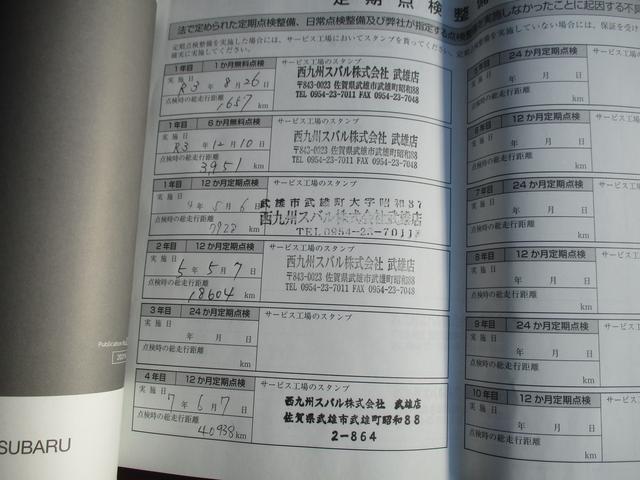 定期点検整備
法で定められた定期点検整備、日常点検整備及び弊社が指定する点検整備を実施しなかったことに起因する不具
定期点検整備を実施した場合には、サービス工場においてスタンプを貰ってください。定期点検整備を実施していない場合には、保証を受け
確実に実施してください。
1年目 1か月無料点検 サービス工場のスタンプ
実施日
R3年 8月26日
点検時の総走行距離
1,657 km
西九州スバル株式会社 武雄店
〒843-0023 佐賀県武雄市武雄町昭和88
TEL 0954-23-7011 FAX 0954-23-7048
1年目 6か月無料点検 サービス工場のスタンプ
実施日
R3年 12月10日
点検時の総走行距離
3,951 km
西九州スバル株式会社 武雄店
〒843-0023 佐賀県武雄市武雄町昭和88
TEL 0954-23-7011 FAX 0954-23-7048
1年目 12か月定期点検 サービス工場のスタンプ
実施日
4年 5月6日
点検時の総走行距離
7928 km
武雄市武雄町大字昭和87
西九州スバル株式会社武雄店
TEL0954-23-7011
2年目 12か月定期点検 サービス工場のスタンプ
実施日
5年 5月7日
点検時の総走行距離
18604 km
西九州スバル株式会社 武雄店
〒843-0023 佐賀県武雄市武雄町昭和88
TEL 0954-23-7011 FAX 0954-23-7048
3年目 24か月定期点検 サービス工場のスタンプ
実施日
年 月 日
点検時の総走行距離
km
4年目 12か月定期点検 サービス工場のスタンプ
実施日
7年 6月7日
点検時の総走行距離
40938 km
西九州スバル株式会社 武雄店
佐賀県武雄市武雄町昭和88
2-864
24か月定期点検 サービス工場のスタ
実施日
年 月 日
点検時の総走行距離
km
12か月定期点検 サービス工場の
実施日
年 月 日
点検時の総走行距離
km
7年目 24か月定期点検 サービス工場
実施日
年 月 日
点検時の総走行距離
km
8年目 12か月定期点検 サービス工
実施日
年 月 日
点検時の総走行距離
km
9年目 24か月定期点検 サービス
実施日
年 月 日
点検時の総走行距離
km
10年目 12か月定期点検 サービ
実施日
年 月 日
点検時の総走行距離
km
Publication No.
SUBARU